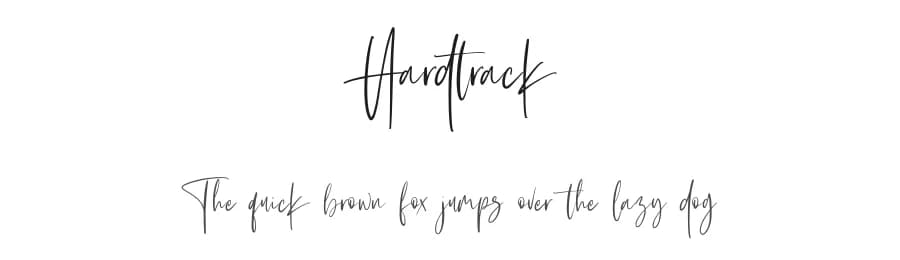 Hardtrack
The quick brown fox jumps over the lazy dog